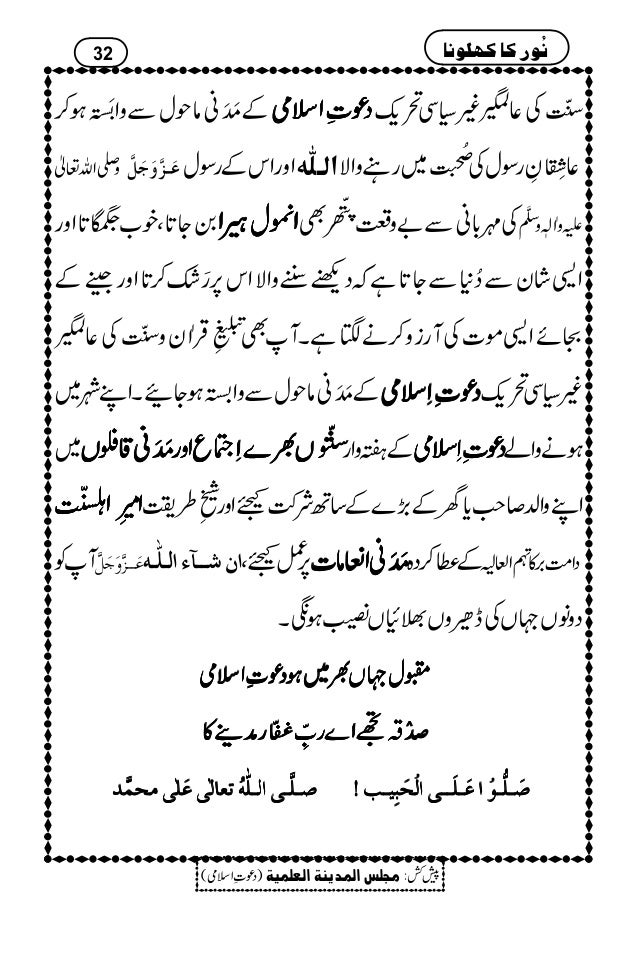 نُور کا کھلونا
32
سنّت کی عالمگیر غیر سیاسی تحریک دعوتِ اسلامی کے مَدَنی ماحول سے وابَستہ ہوکر
عاشِقانِ رسول کی صُحبت میں رہنے والا اللہ اور اس کے رسول عَزَّوَجَلَّ وصلی اللہ تعالیٰ
علیہ واٰلہٖ وسلَّم کی مہربانی سے بے وقعت پتّھر بھی انمول ہیرا بن جاتا، خوب جگمگاتا اور
ایسی شان سے دُنیا سے جاتا ہے کہ دیکھنے سننے والا اس پر رَشک کرتا اور جینے کے
بجائے ایسی موت کی آرزو کرنے لگتا ہے۔ آپ بھی تبلیغِ قراٰن وسنّت کی عالمگیر
غیر سیاسی تحریک دعوتِ اِسلامی کے مَدَنی ماحول سے وابستہ ہوجائیے ۔ اپنے شہر میں
ہونے والے دعوتِ اِسلامی کے ہفتہ وار سنّتوں بھرے اِجتماع اور مَدَنی قافلوں میں
اپنے والد صاحب یا گھر کے بڑے کے ساتھ شرکت کیجئے اور شیخِ طریقت امیرِ اہلسنّت
دامت برکاتہم العالیہ کے عطا کردہ مَدَنی انعامات پر عمل کیجئے، ان شآء اللہ عَزَّوَجَلَّ آپ کو
دونوں جہاں کی ڈھیروں بھلائیاں نصیب ہونگی ۔
مقبول جہاں بھر میں ہو دعوتِ اسلامی
صدْقہ تجھے اے ربِّ غفّار مدینے کا
صَلُّوْا عَلَی الْحَبِیب ! صلَّی اللہُ تعالٰی عَلٰی محمَّد
پیش کش: مجلس المدینة العلمیة (دعوتِ اسلامی)